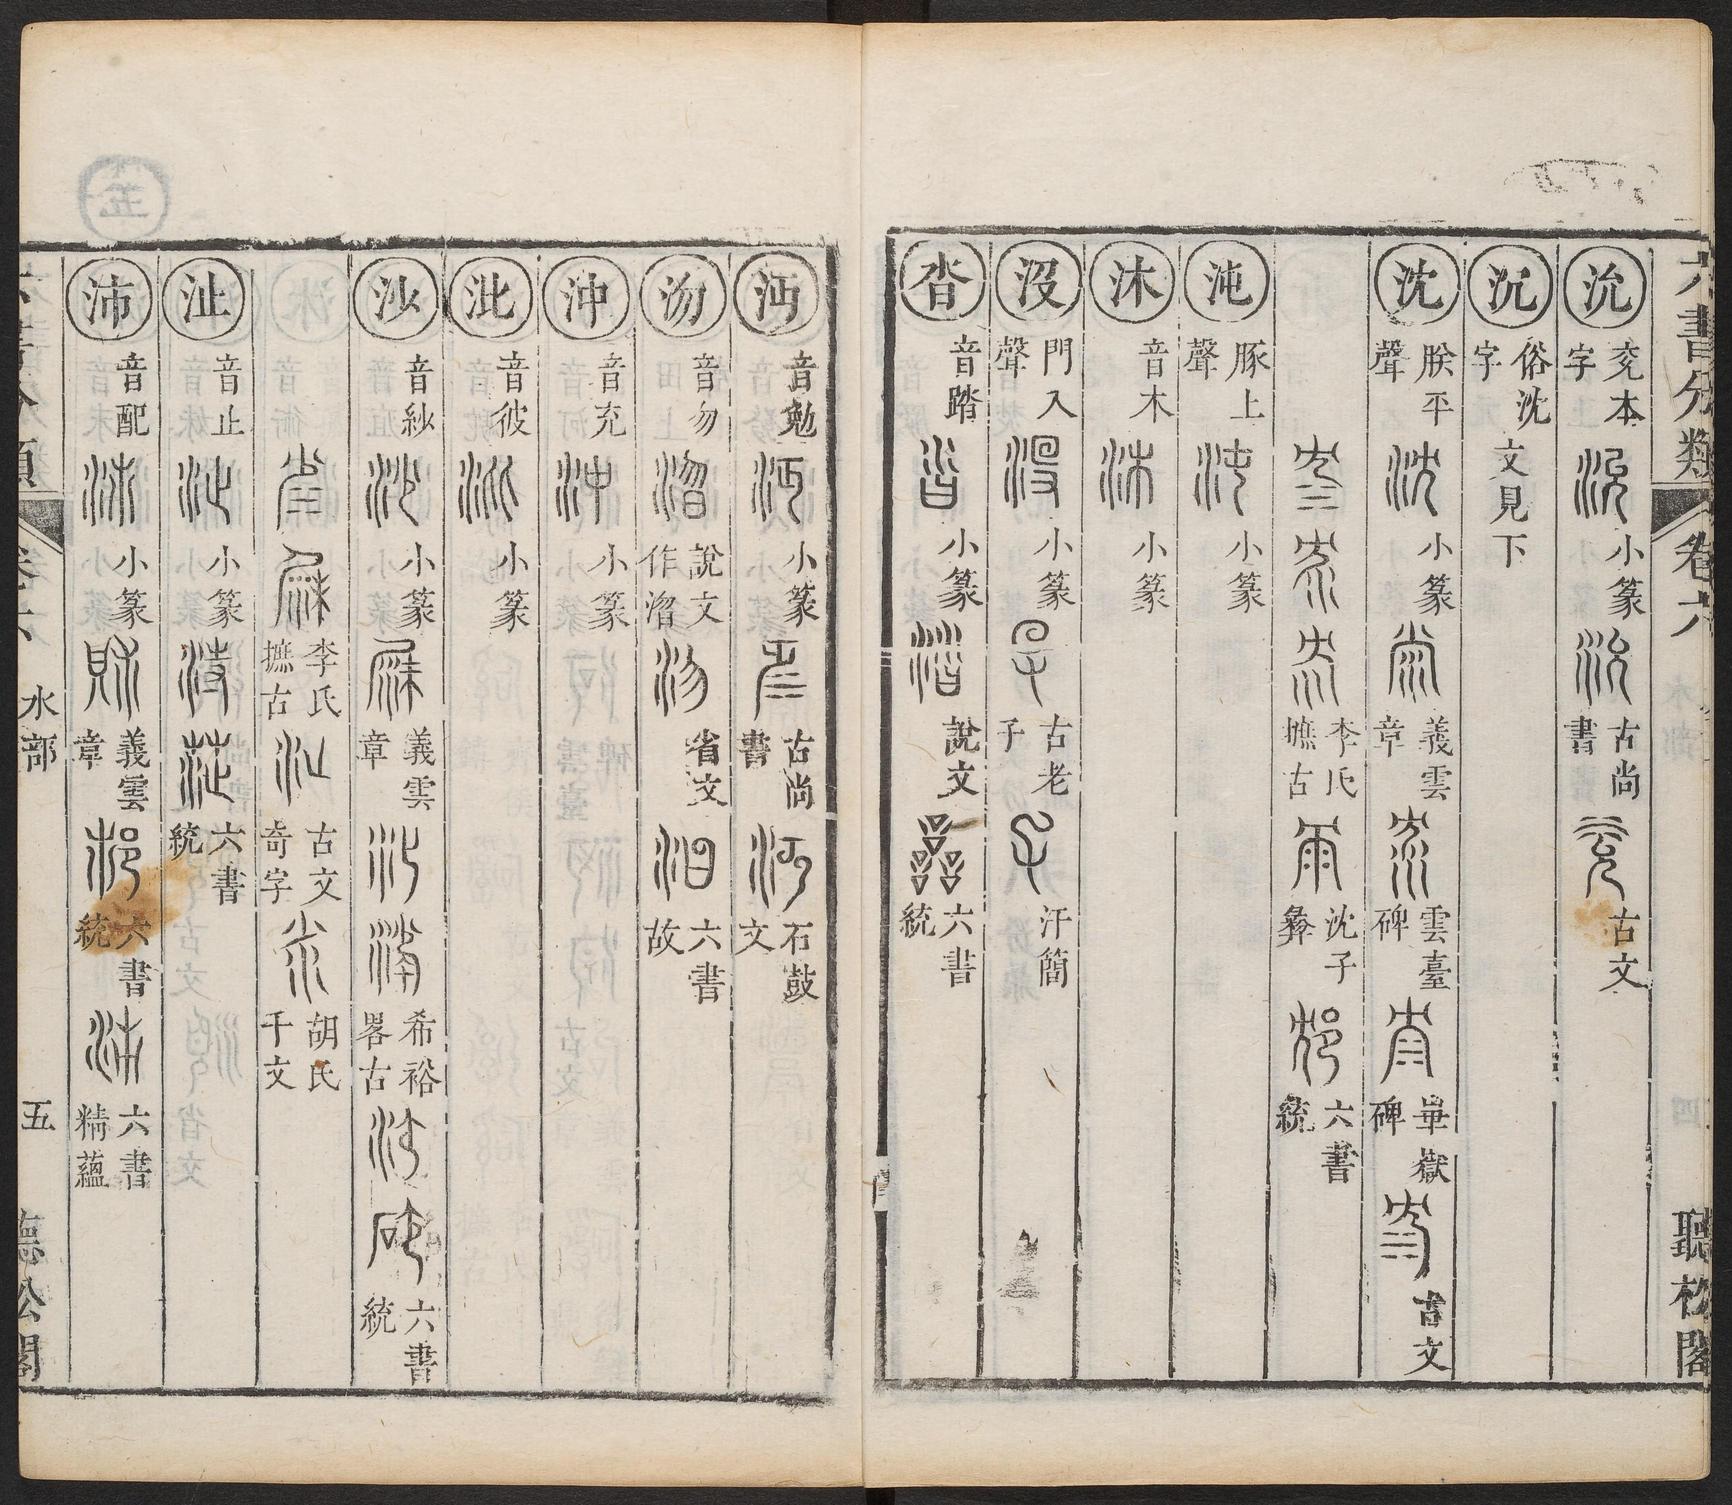 六書分類 卷六 聽松閣
沇 兗本字 小篆 古尚書 古文
沉 俗沈字 文見下
沈 朕平聲 小篆 義雲章 雲臺碑 華嶽碑 古文
李氏摭古 沈子彝 六書統
沌 豚上聲 小篆
沐 音木 小篆
沒 門入聲 小篆 古老子 汗簡
沓 音踏 小篆 說文 六書統
沔 音勉 小篆 古尚書 石鼓文
沕 音勿 說文作淴 省文 六書故
沖 音充 小篆
沘 音彼 小篆
沙 音紗 小篆 義雲章 希裕畧古 六書統
李氏摭古 古文奇字 胡氏千文
沚 音止 小篆 六書統
沛 音配 小篆 義雲章 六書統 六書精蘊
水部 五